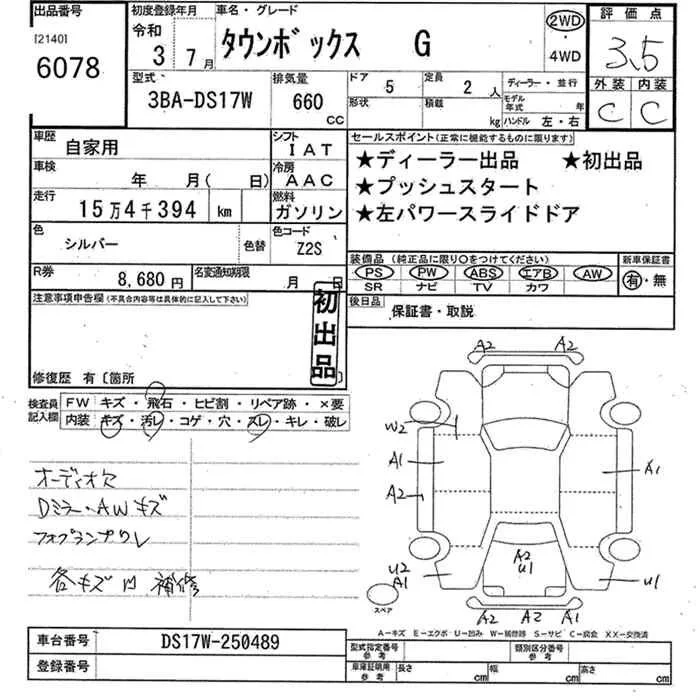 出品番号
[2140]
6078
初度登録年月
令和 3 7月
車名・グレード
タウンボックス G
2WD
4WD
評価点
3.5
外装 内装
C C
型式
3BA-DS17W
排気量
660 CC
ドア 5
形状
定員 2人
積載 kg
ディーラー・並行
モデル年式 年
ハンドル 左・右
車歴 自家用
シフト IAT
車検 年 月( 日)
冷房 AAC
走行 15万4千394 km
燃料 ガソリン
色 シルバー
色替
色コード Z2S
R券 8,680円
名変通知期限 月 日
セールスポイント(正常に機能するものに限ります)
★ディーラー出品 ★初出品
★プッシュスタート
★左パワースライドドア
装備品(純正品に限り○をつけてください)
PS PW ABS エアB AW
SR ナビ TV カワ
新車保証書
有・無
後日品 保証書・取説
注意事項申告欄(不具合内容等は具体的に記入して下さい)
初出品
修復歴 有〔箇所 〕
検査員記入欄
FW キズ・飛石・ヒビ割・リペア跡・×要
内装 キズ・汚レ・コゲ・穴・スレ・キレ・破レ
オーディオ欠
Dミラー・AWキズ
フォグランプワレ
各キズ凹補修
A2 A2
W2
A1
A2
A1
A2
U1
U2
A1
U1
スペア
A2 A2 A1
A-キズ E-エクボ U-凹み W-補修跡 S-サビ C-腐食 XX-交換済
車台番号 DS17W-250489
登録番号
型式指定番号 参考
類別区分番号 参考
車庫証明用 参考
長さ cm 幅 cm 高さ cm